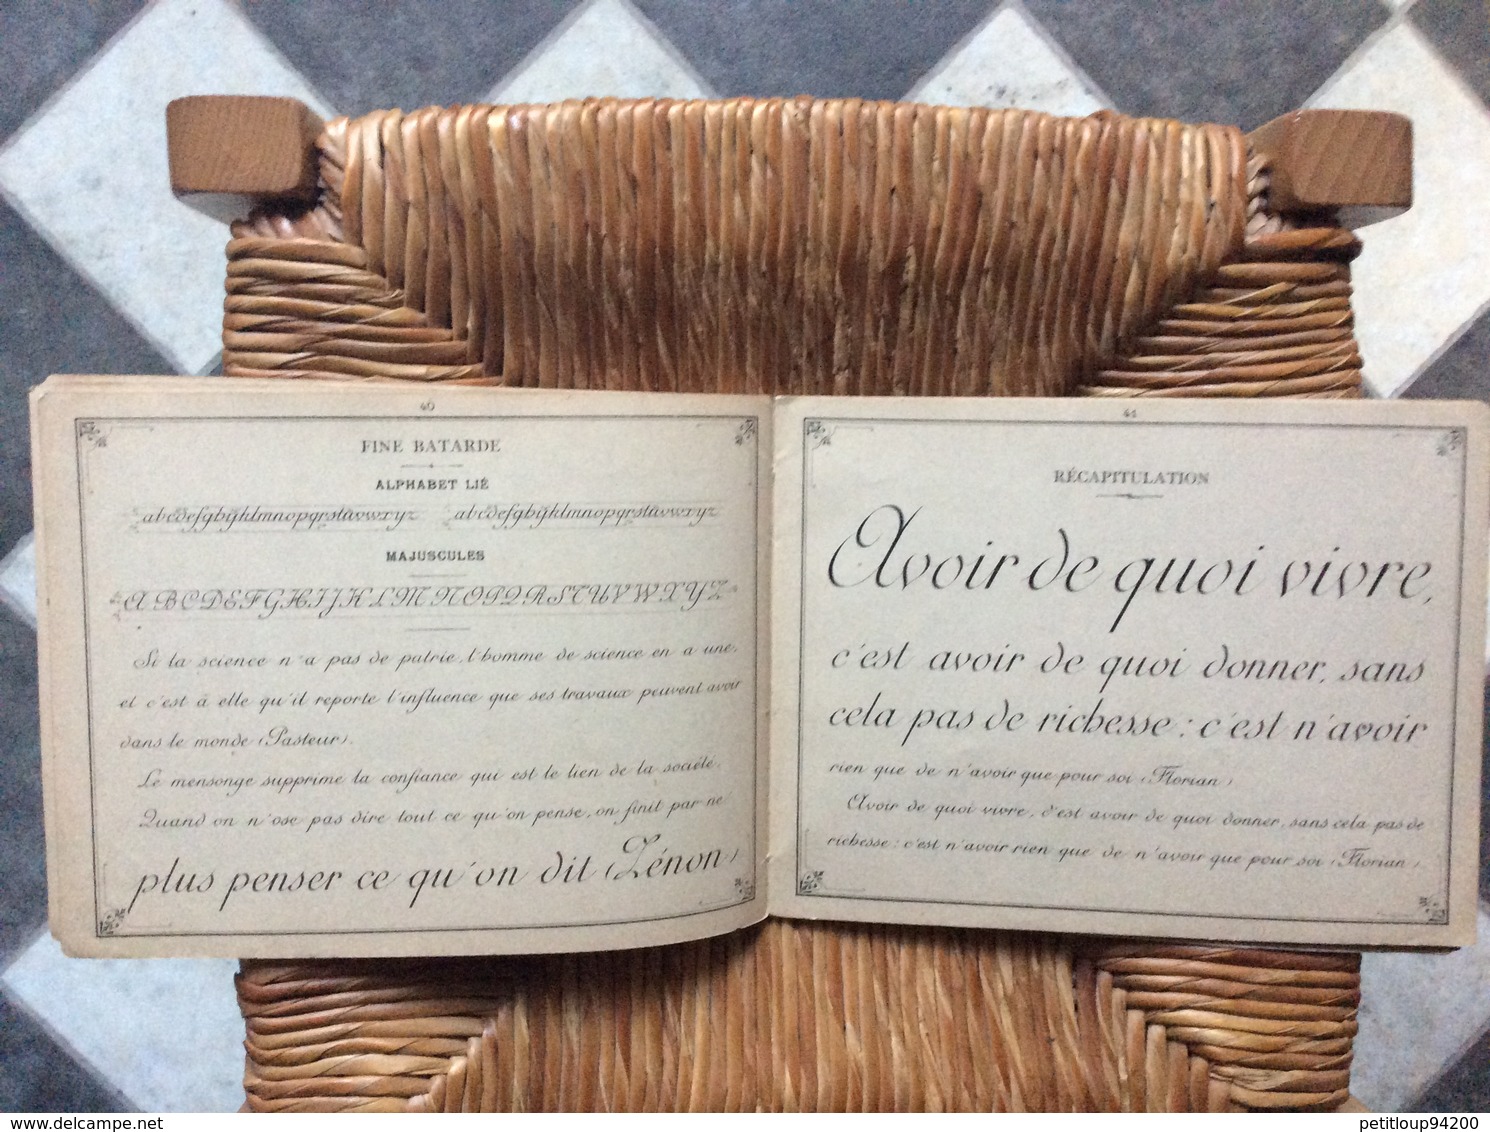 40
FINE BATARDE
ALPHABET LIÉ
abcdefghijklmnopqrstuvwxyz abcdefghijklmnopqrstuvwxyz
MAJUSCULES
ABCDEFGHIJKLMNOPQRSTUVWXYZ
Si la science n'a pas de patrie, l'homme de science en a une,
et c'est à elle qu'il reporte l'influence que ses travaux peuvent avoir
dans le monde (Pasteur).
Le mensonge supprime la confiance qui est le lien de la société.
Quand on n'ose pas dire tout ce qu'on pense, on finit par ne
plus penser ce qu'on dit (Zénon)
41
RÉCAPITULATION
Avoir de quoi vivre,
c'est avoir de quoi donner, sans
cela pas de richesse : c'est n'avoir
rien que de n'avoir que pour soi (Florian)
Avoir de quoi vivre, c'est avoir de quoi donner, sans cela pas de
richesse : c'est n'avoir rien que de n'avoir que pour soi (Florian)
www.delcampe.net
petitloup94200